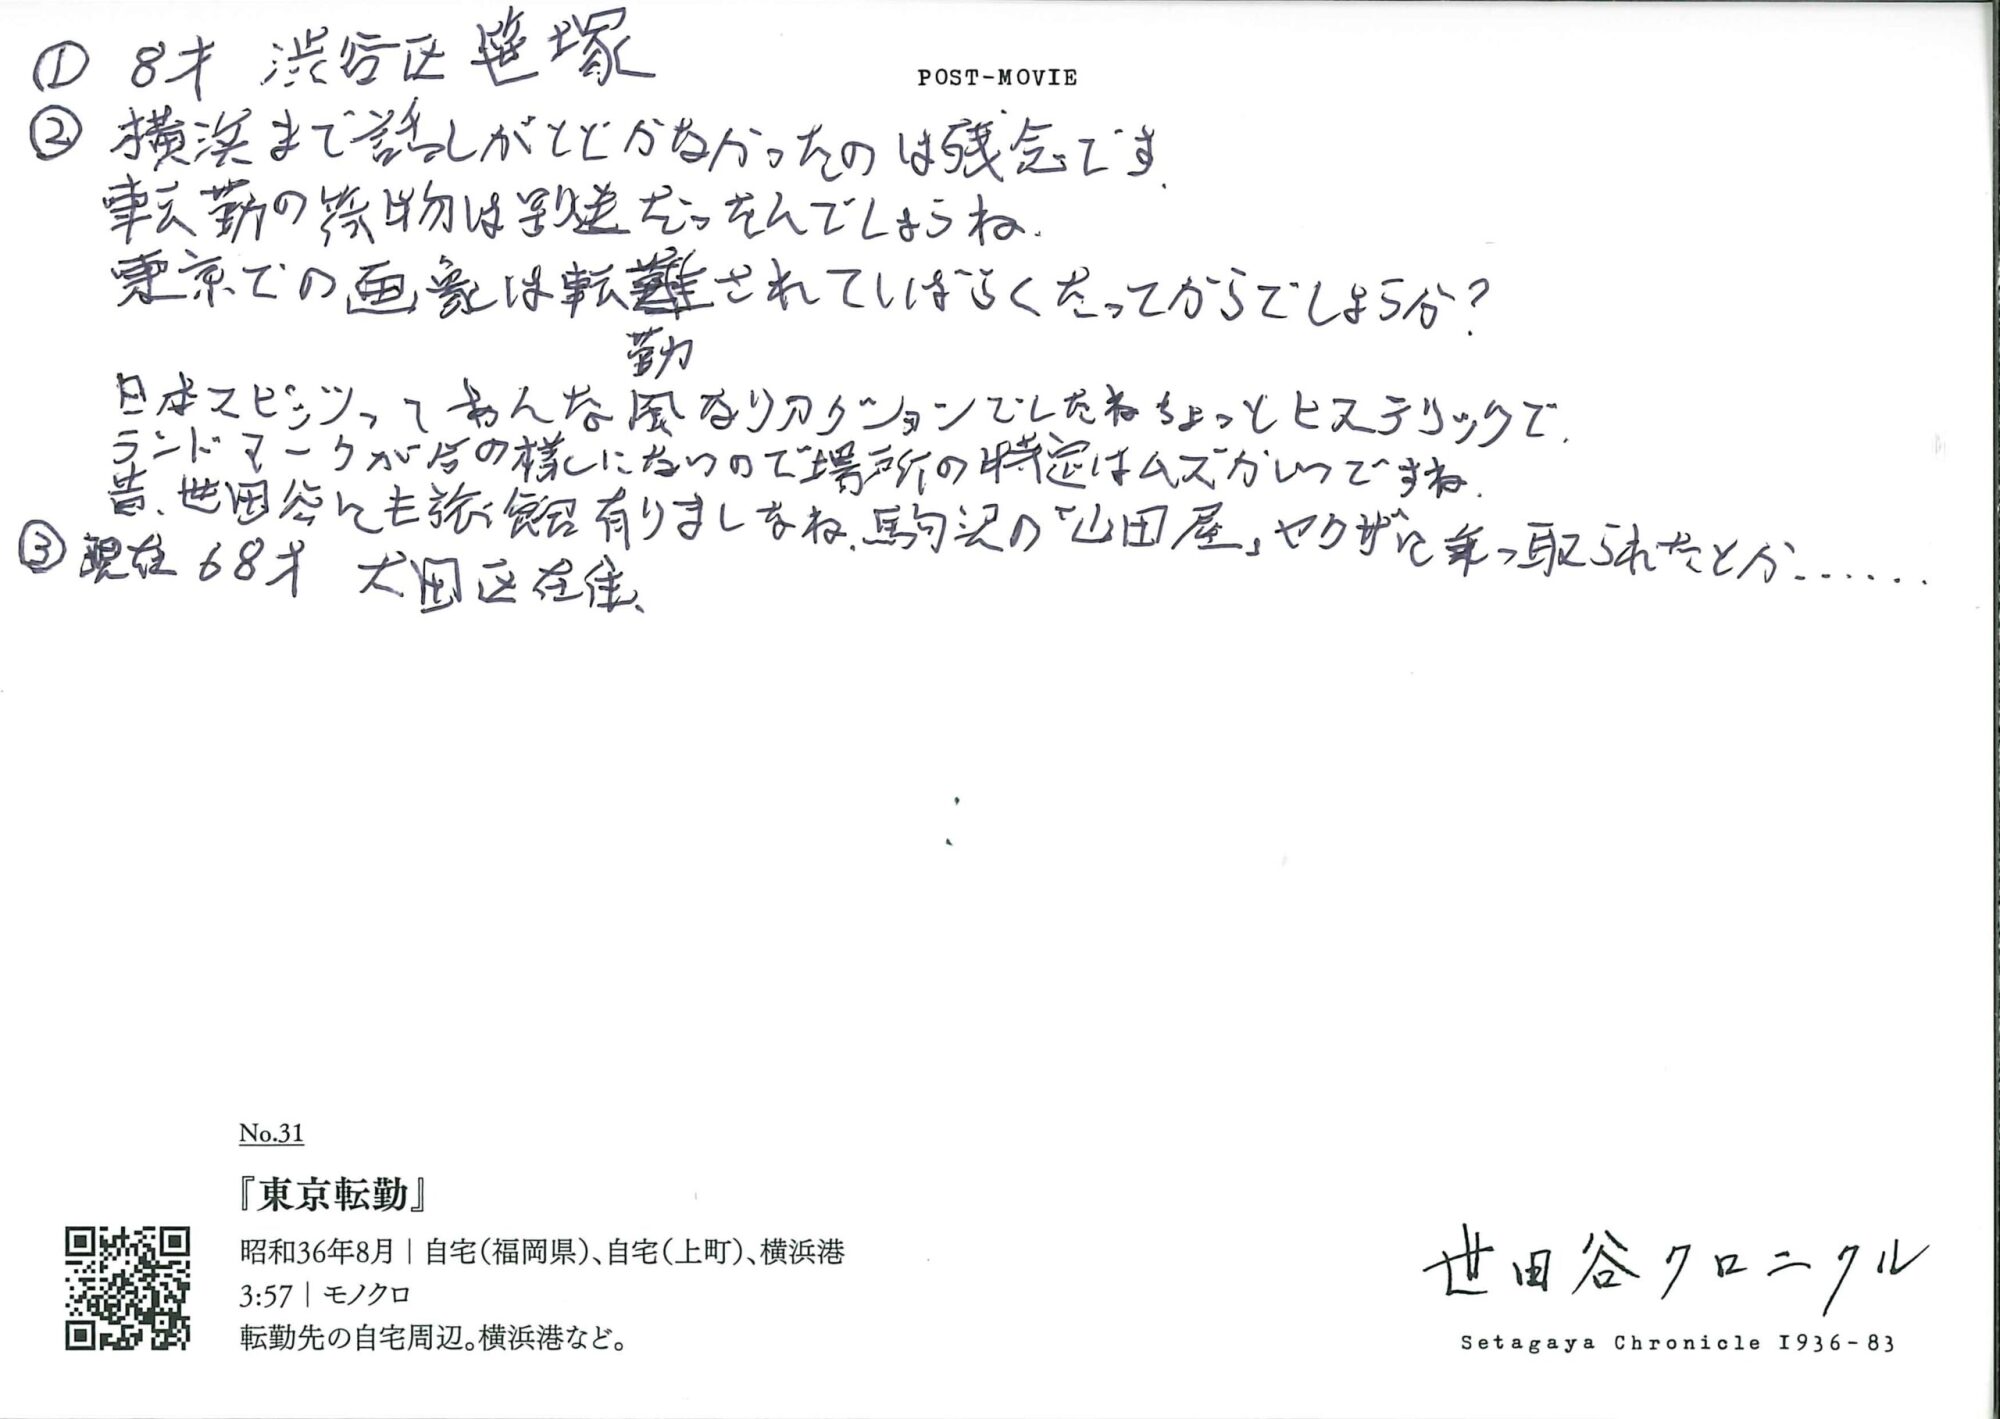 POST-MOVIE
① 8才 渋谷区 笹塚
② 横浜まで話しがとどかなかったのは残念です.
転勤の荷物は別送だったんでしょうね.
東京での画象は転勤されてしばらくたってからでしょうか?
日本スピッツってあんな風なリアクションでしたねちょっとヒステリックで.
ランドマークが今の様しにないので場所の特定はムズかしいですね.
昔、世田谷にも旅館有りましたね.駒沢の「山田屋」ヤクザに乗っ取られたとか......
③ 現在 68才 大田区在住、
No.31
『東京転勤』
昭和36年8月 | 自宅(福岡県)、自宅(上町)、横浜港
3:57 | モノクロ
転勤先の自宅周辺。横浜港など。
世田谷クロニクル
Setagaya Chronicle 1936-83